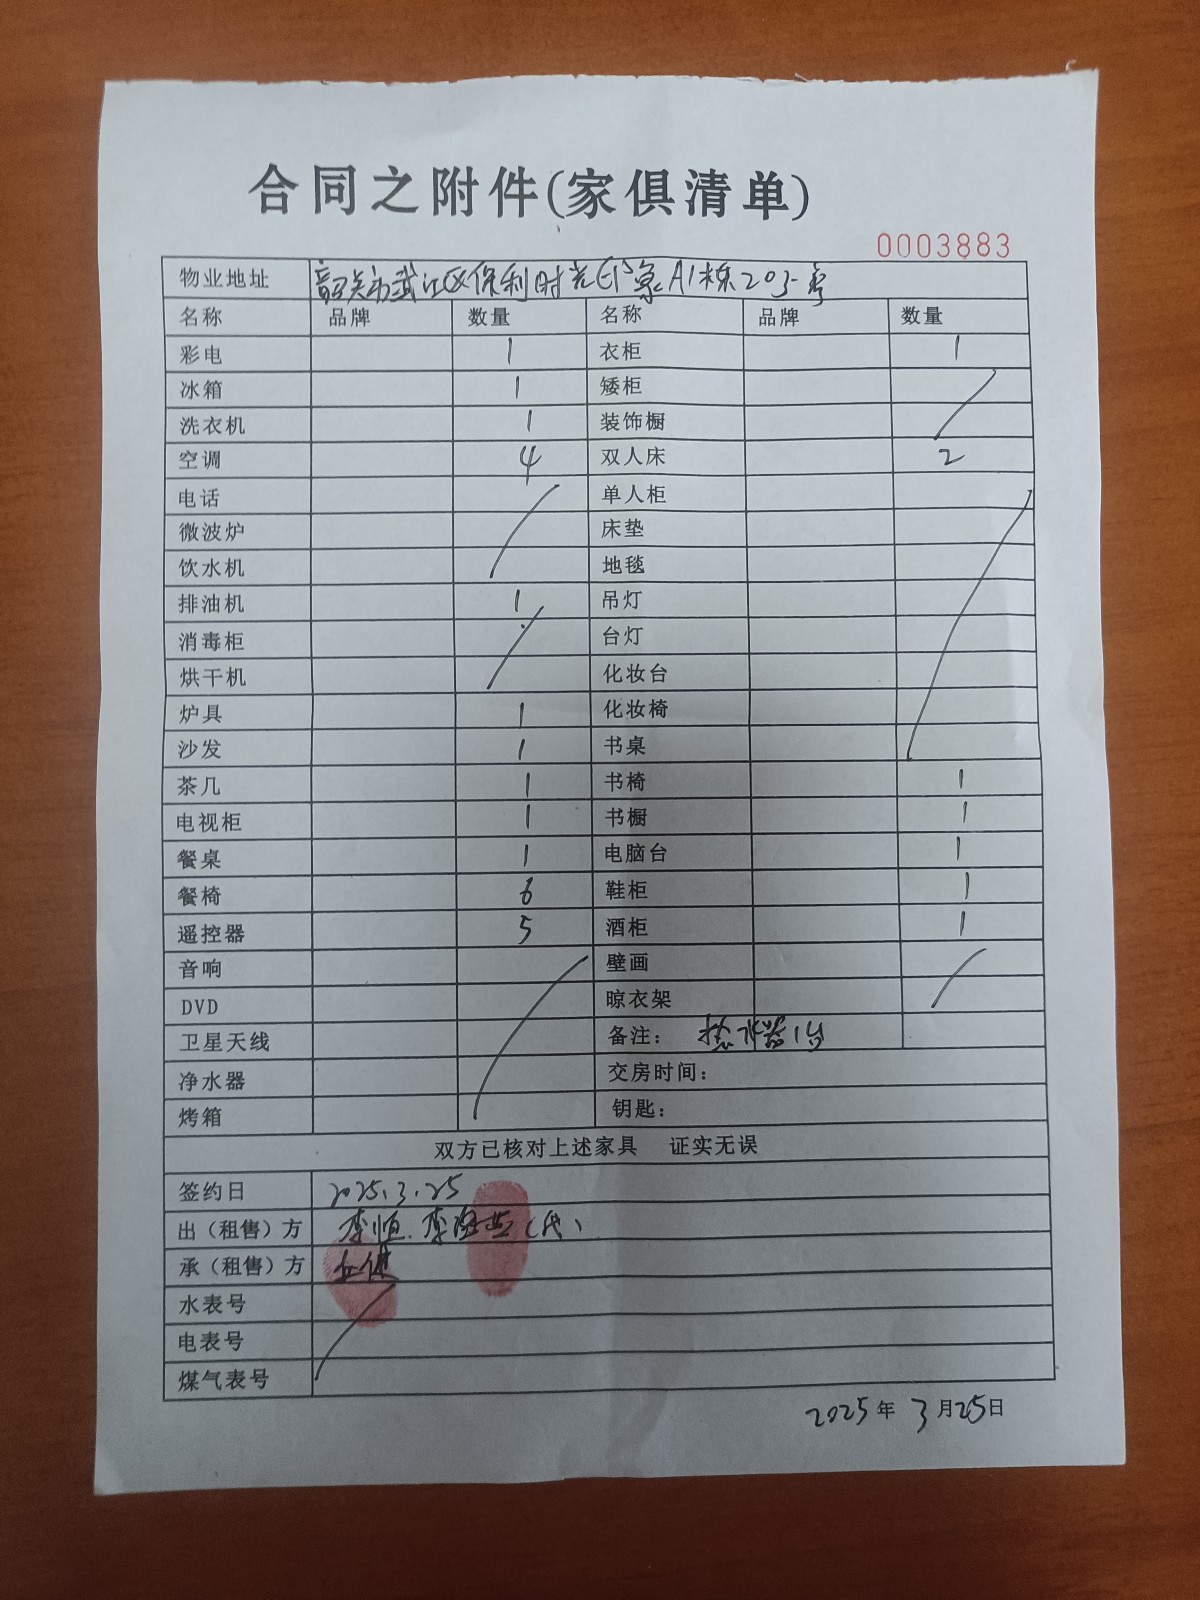 合同之附件(家俱清单)
0003883
物业地址 韶关市武江区保利时光印象A1栋203号
名称 品牌 数量 名称 品牌 数量
彩电 1 衣柜 1
冰箱 1 矮柜
洗衣机 1 装饰橱
空调 4 双人床 2
电话 单人柜
微波炉 床垫
饮水机 地毯
排油机 1 吊灯
消毒柜 台灯
烘干机 化妆台
炉具 1 化妆椅
沙发 1 书桌
茶几 1 书椅 1
电视柜 1 书橱 1
餐桌 1 电脑台 1
餐椅 6 鞋柜 1
遥控器 5 酒柜 1
音响 壁画
DVD 晾衣架
卫星天线 备注: 热水器1台
净水器 交房时间:
烤箱 钥匙:
双方已核对上述家具 证实无误
签约日 2025.3.25
出(租售)方 李恒.李(代)
承(租售)方
水表号
电表号
煤气表号
2025年3月25日